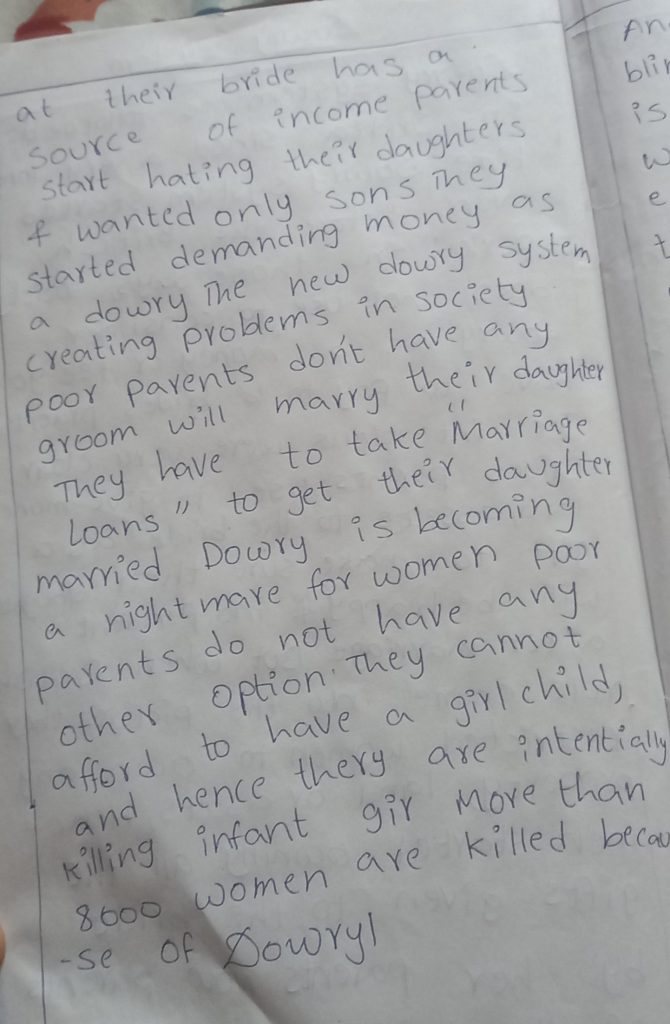 at their bride has a
source of income parents
start hating their daughters
& wanted only sons They
started demanding money as
a dowry The new dowry system
creating problems in society
poor parents don't have any
groom will marry their daughter
They have to take "Marriage
Loans" to get their daughter
married Dowry is becoming
a night mare for women poor
parents do not have any
other option. They cannot
afford to have a girl child,
and hence thery are intentially
killing infant gir More than
8600 women are killed becau
-se of Dowry|
An
blin
is
w
e
t